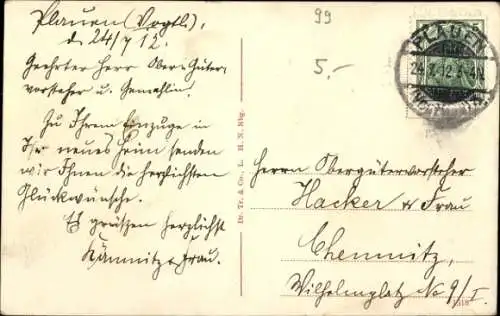 Plauen (Vogtl.),
d. 24/7 12.
Geehrter Herr Ober-Güter-
vorsteher u. Gemahlin!
Zu Ihrem Einzuge in
Ihr neues Heim senden
wir Ihnen die herzlichsten
Glückwünsche.
Es grüßen herzlichst
Kämnitz u. Frau.
99
5.-
Dr. Tr. & Co., L. H. N. Nbg.
PLAUEN
(VOGTL.)
Herrn Obergütervorsteher
Hacker u. Frau
Chemnitz,
Wilhelmplatz No 9/I